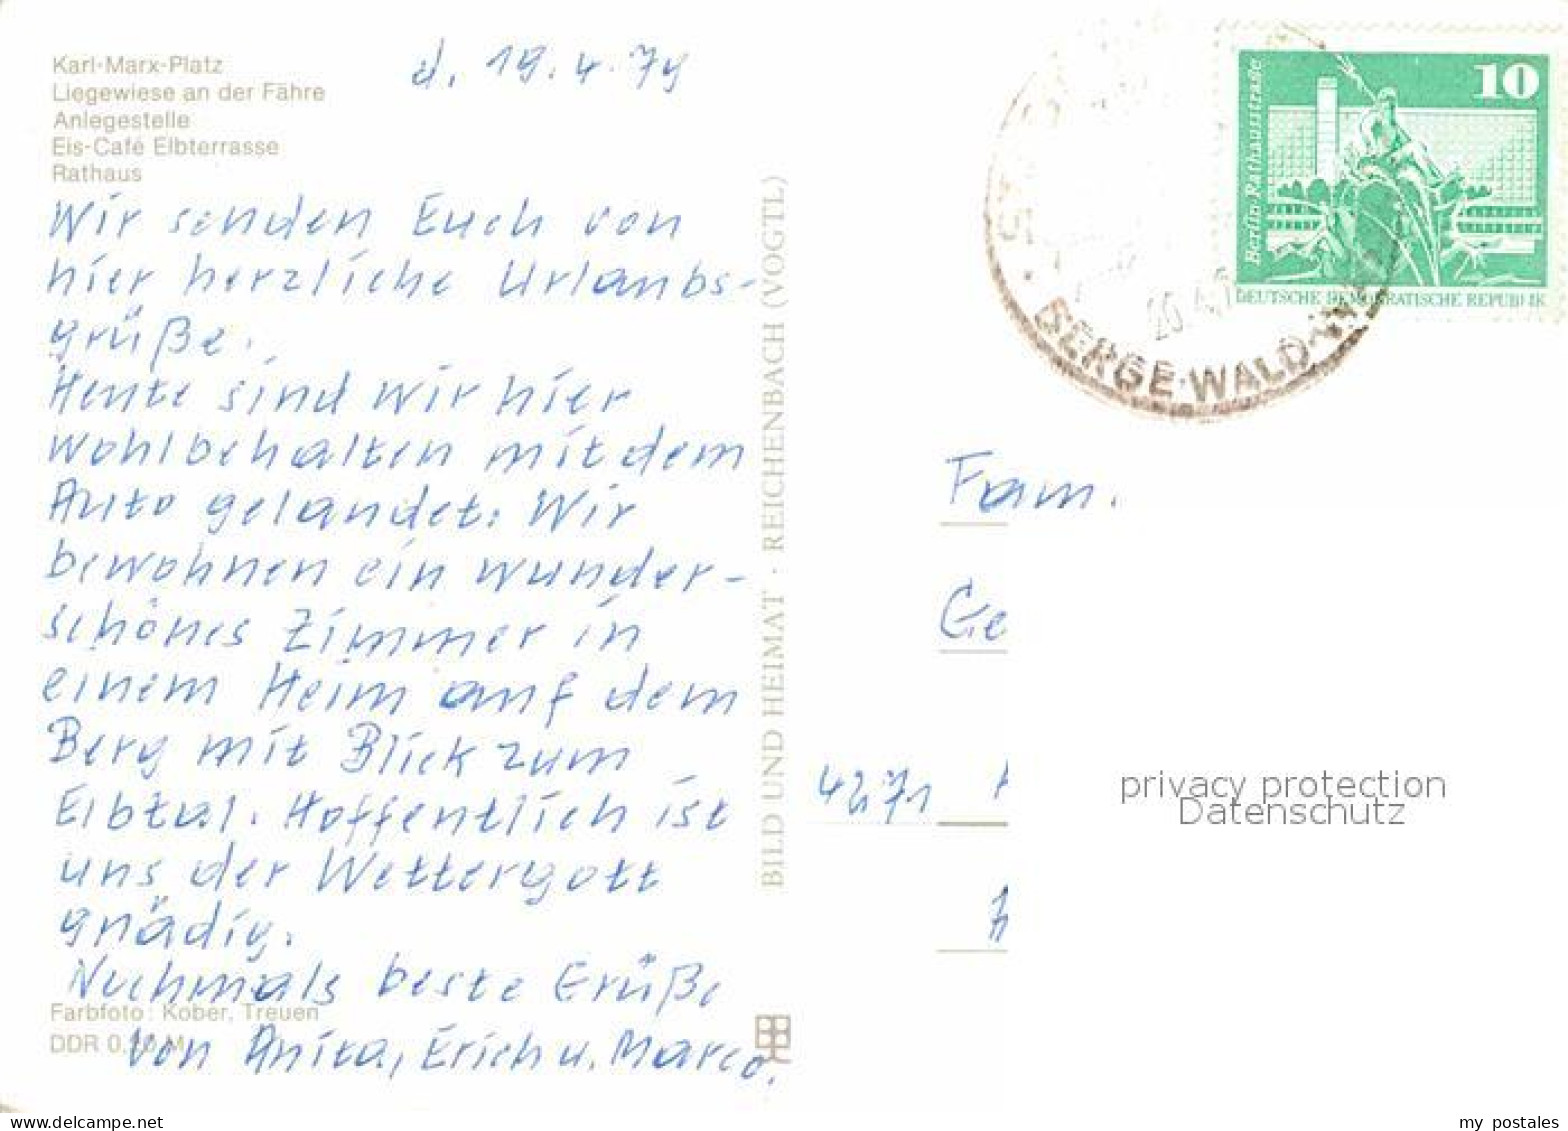 Karl-Marx-Platz
Liegewiese an der Fähre
Anlegestelle
Eis-Café Elbterrasse
Rathaus
d. 19.4.79
Wir senden Euch von
hier herzliche Urlaubs-
grüße.
Heute sind wir hier
wohlbehalten mit dem
Auto gelandet. Wir
bewohnen ein wunder-
schönes Zimmer in
einem Heim auf dem
Berg mit Blick zum
Elbtal. Hoffentlich ist
uns der Wettergott
gnädig.
Nochmals beste Grüße
von Anita, Erich u. Marco.
Farbfoto: Kober, Treuen
DDR 0,20 M
BILD UND HEIMAT · REICHENBACH (VOGTL)
10
Berlin, Rathausstraße
DEUTSCHE DEMOKRATISCHE REPUBLIK
BERGE·WALD
Fam.
Ge
4271
privacy protection
Datenschutz
my postales